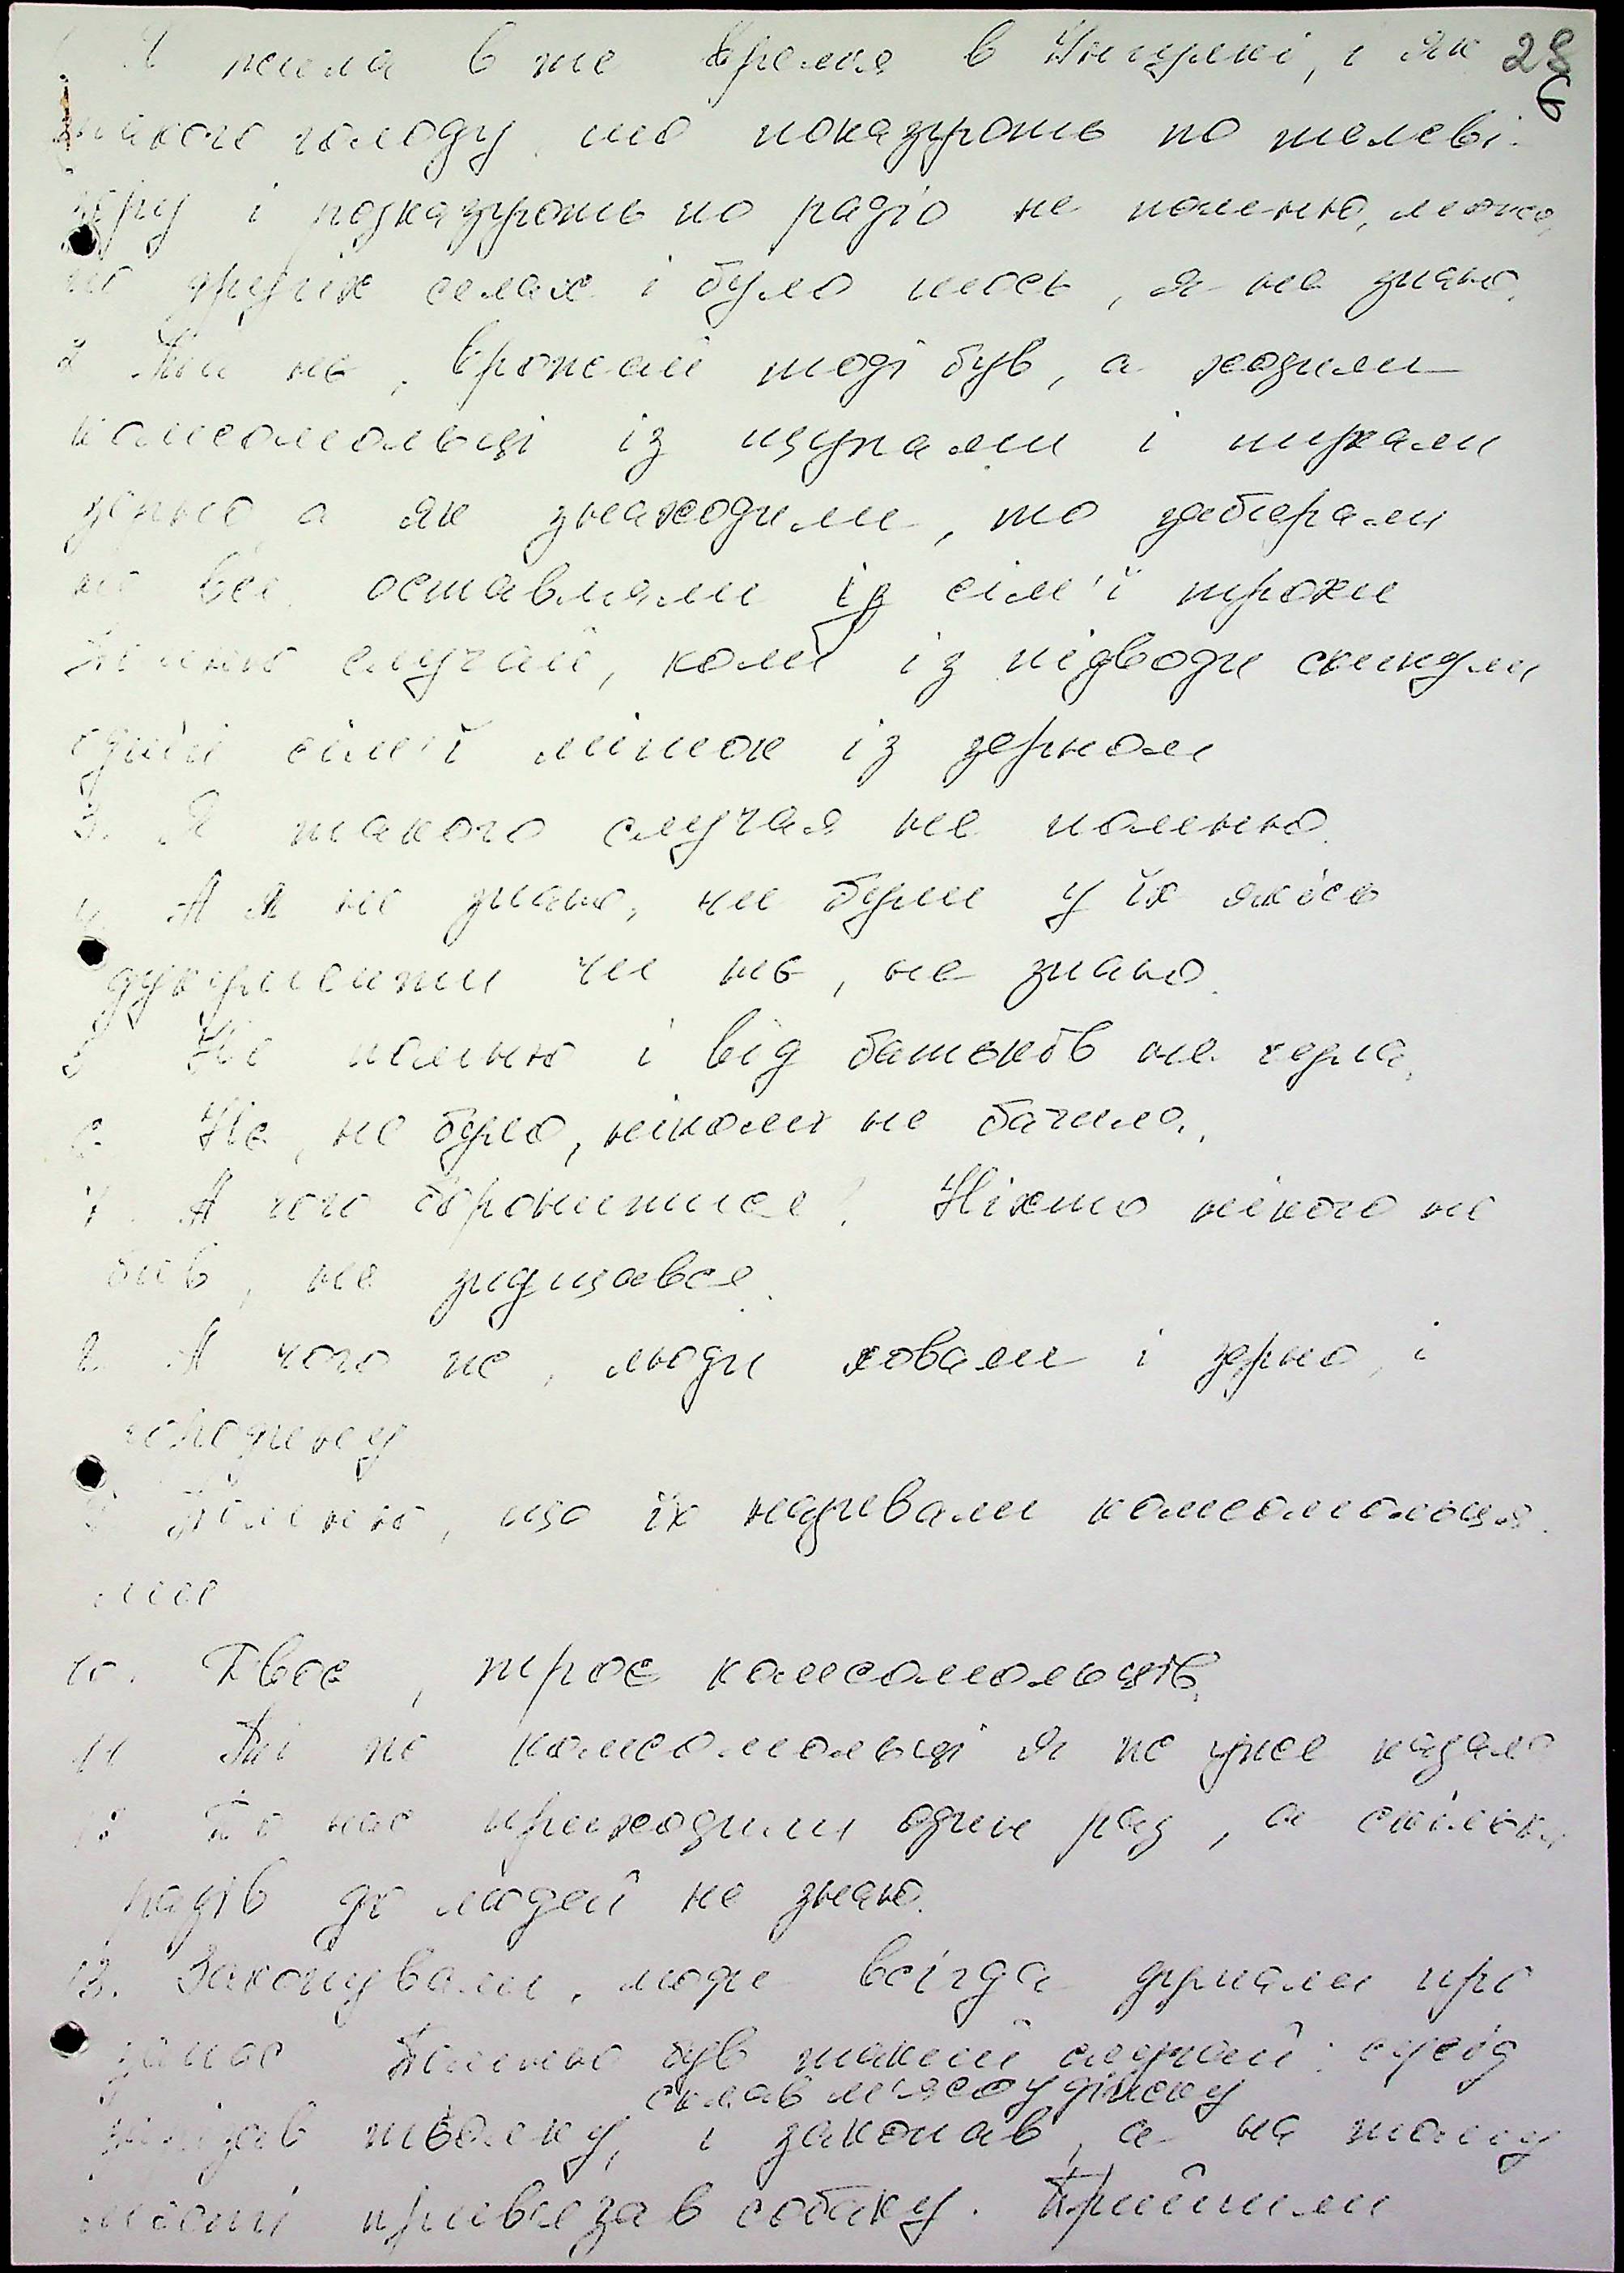 Я жила в те время в , і як 28
такого голоду, що показують по телеві- 6
зору і розказують по радіо не помню, може,
по других селах і було шось, я не знаю.
2. Та не, врожай тоді був, а ходили
комсомольці із щупами і шукали
зерно, а як знаходили, то забирали
не все, оставляли із сім'ї трохи
Помню случай, коли із підводи скинули
одній сім'ї мішок із зерном
3. Я такого случая не помню.
4. А я не знаю, чи були у їх якісь
дукументи чи нє, не знаю.
5 Не помню і від батьків не чула.
6. Не, не було, ніколи не бачила.
7. А чого боронитися? Ніхто нікого не
бив, не знущався.
8. А чого не, люди ховали і зерно, і
городину
9 Помню, що їх називали комсомольця-
ми
10. Двоє, троє комсомольців.
11 Ті же комсомольці я же уже казала
12 До нас приходили один раз, а скільки
разів до людей не знаю.
13. Закопували, люди всігда думали про
запас Помню був такий случай: сусід
склав м'ясо у діжку
зарізав тьолку, і закопав, а на тому
місті привязав собаку. Прийшли